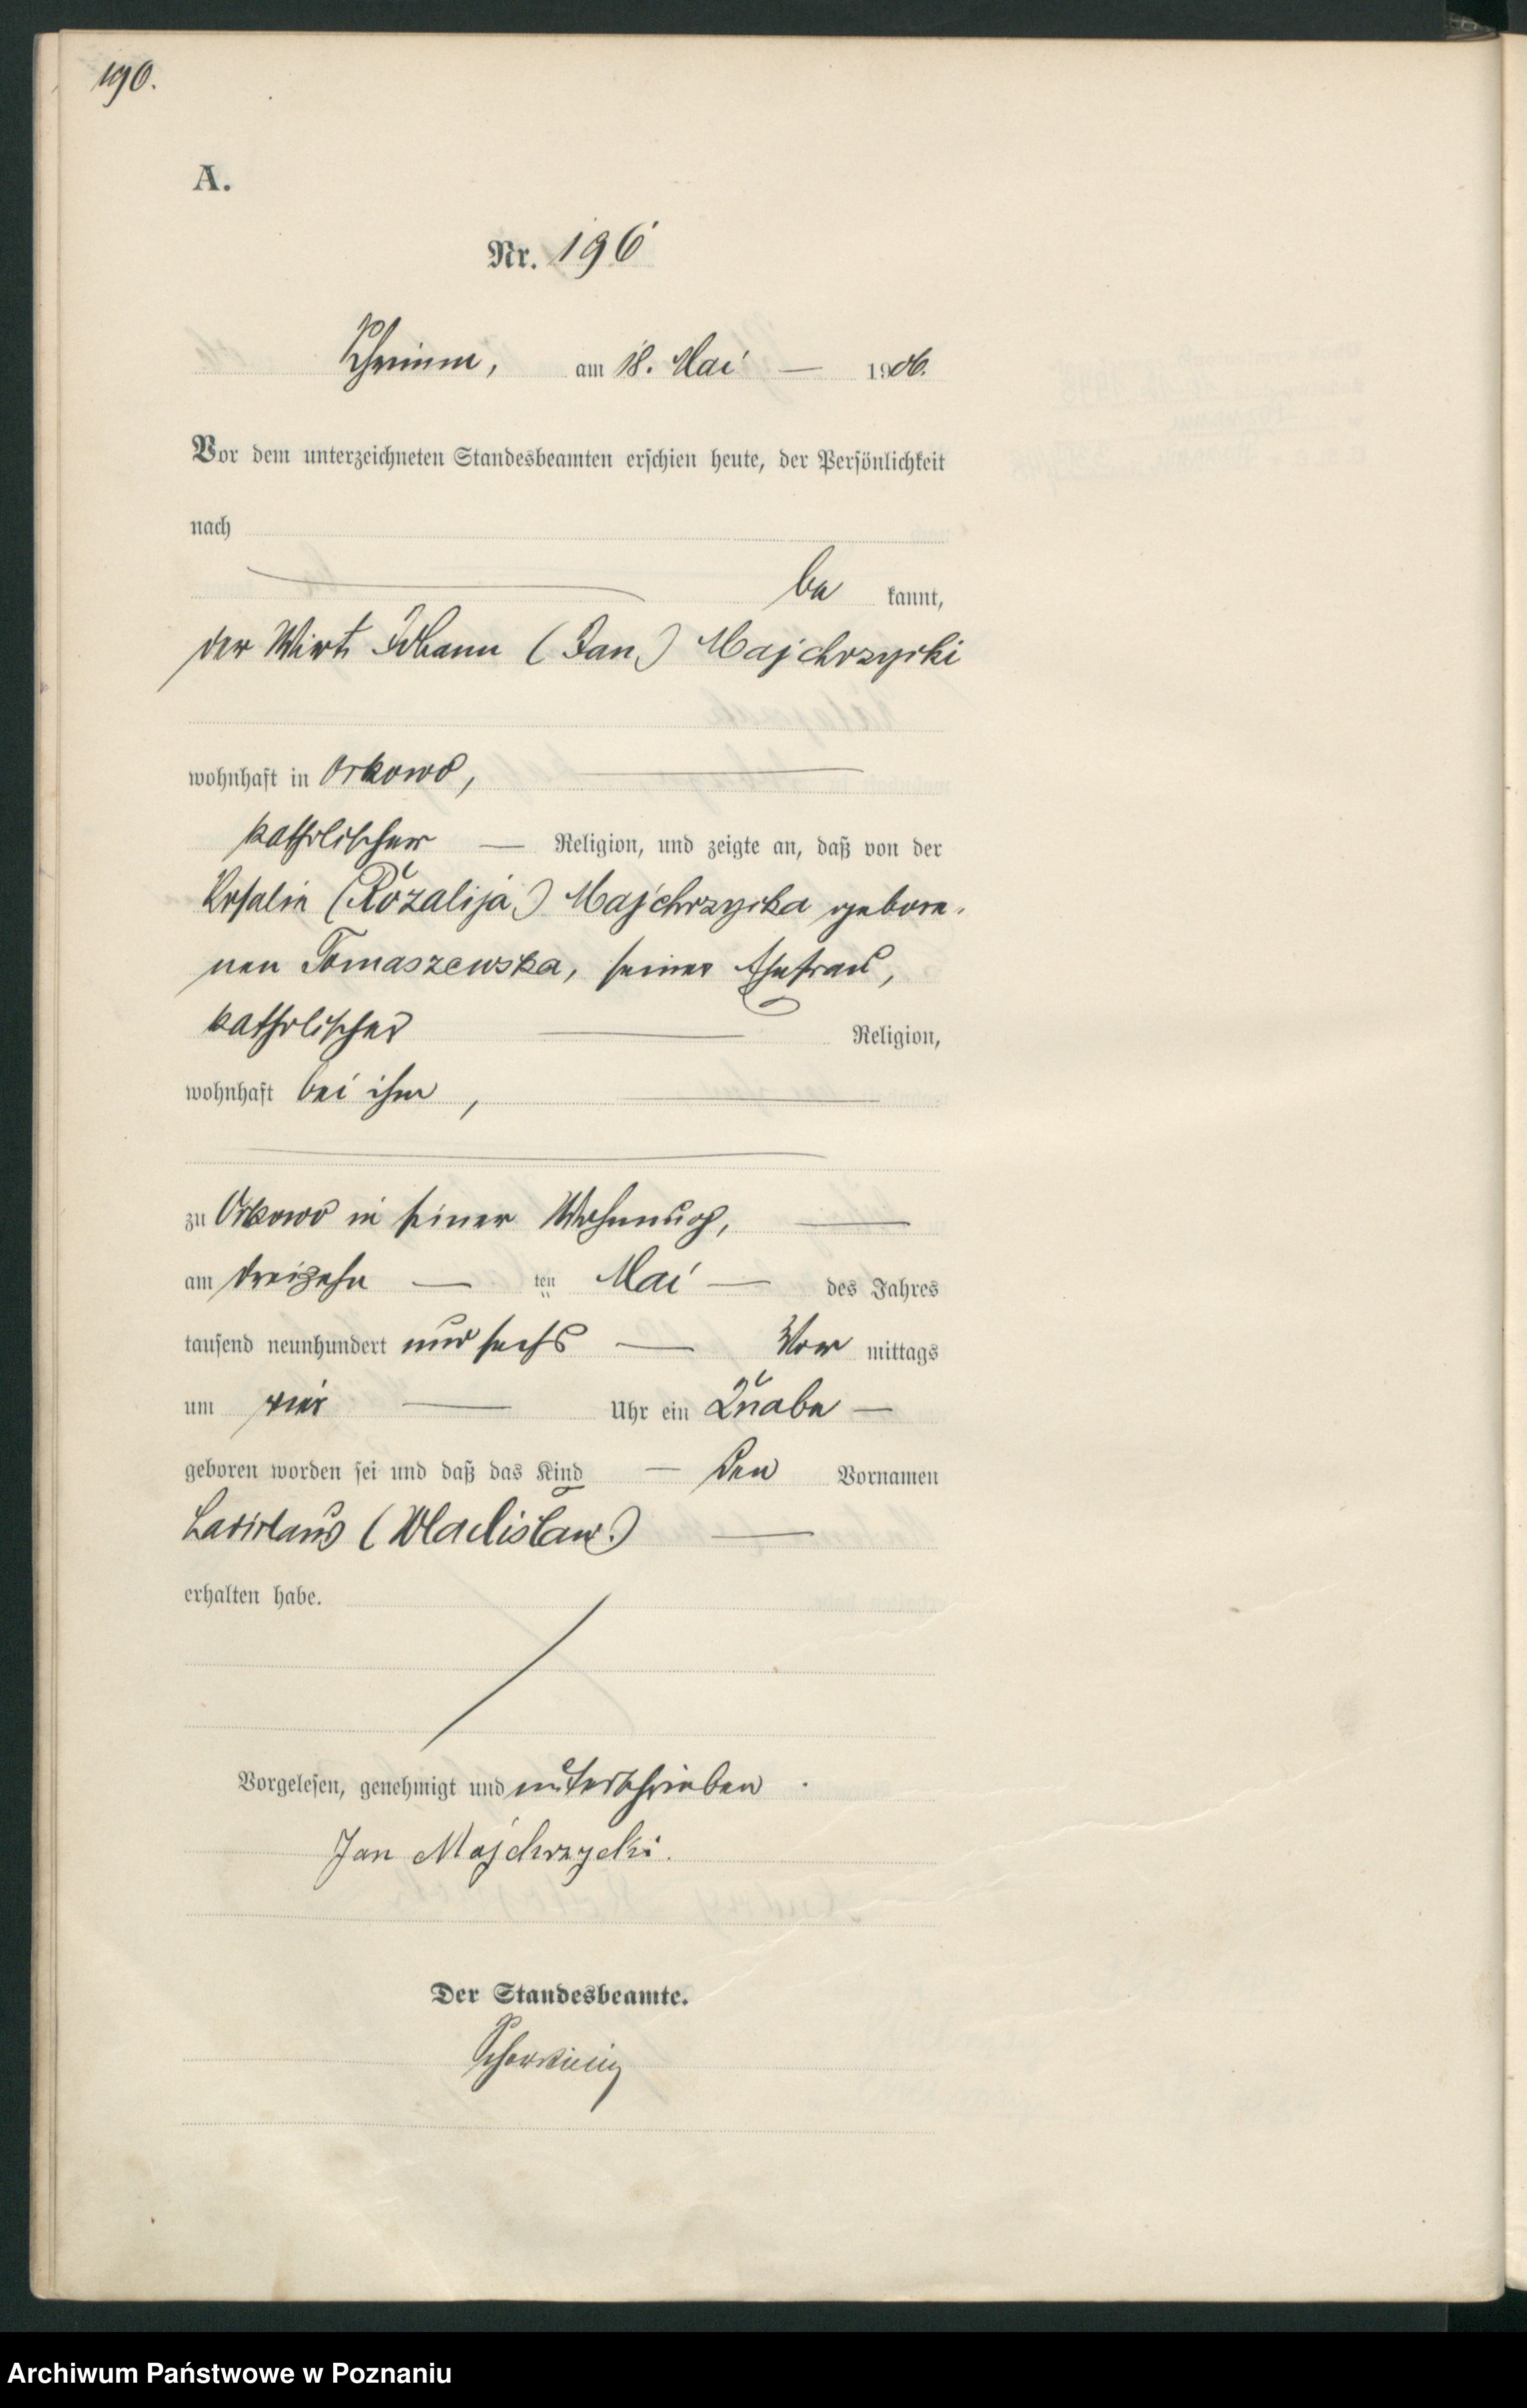 190.
A.
Nr. 196
Schrimm, am 18. Mai — 1906.
Vor dem unterzeichneten Standesbeamten erschien heute, der Persönlichkeit
nach
be kannt,
der Wirt Johann (Jan) Majchrzycki
wohnhaft in Orkowo,
katholischer — Religion, und zeigte an, daß von der
Rosalie (Rozalija) Majchrzycka gebore-
nen Tomaszewska, seiner Ehefrau,
katholischer — Religion,
wohnhaft bei ihm,
zu Orkowo in seiner Wohnung,
am dreizehn — ten Mai — des Jahres
tausend neunhundert und sechs — Vor mittags
um vier — Uhr ein Knabe —
geboren worden sei und daß das Kind — den Vornamen
Ladislaus (Wladislaw)
erhalten habe.
Vorgelesen, genehmigt und unterschrieben.
Jan Majchrzycki.
Der Standesbeamte.
Archiwum Państwowe w Poznaniu